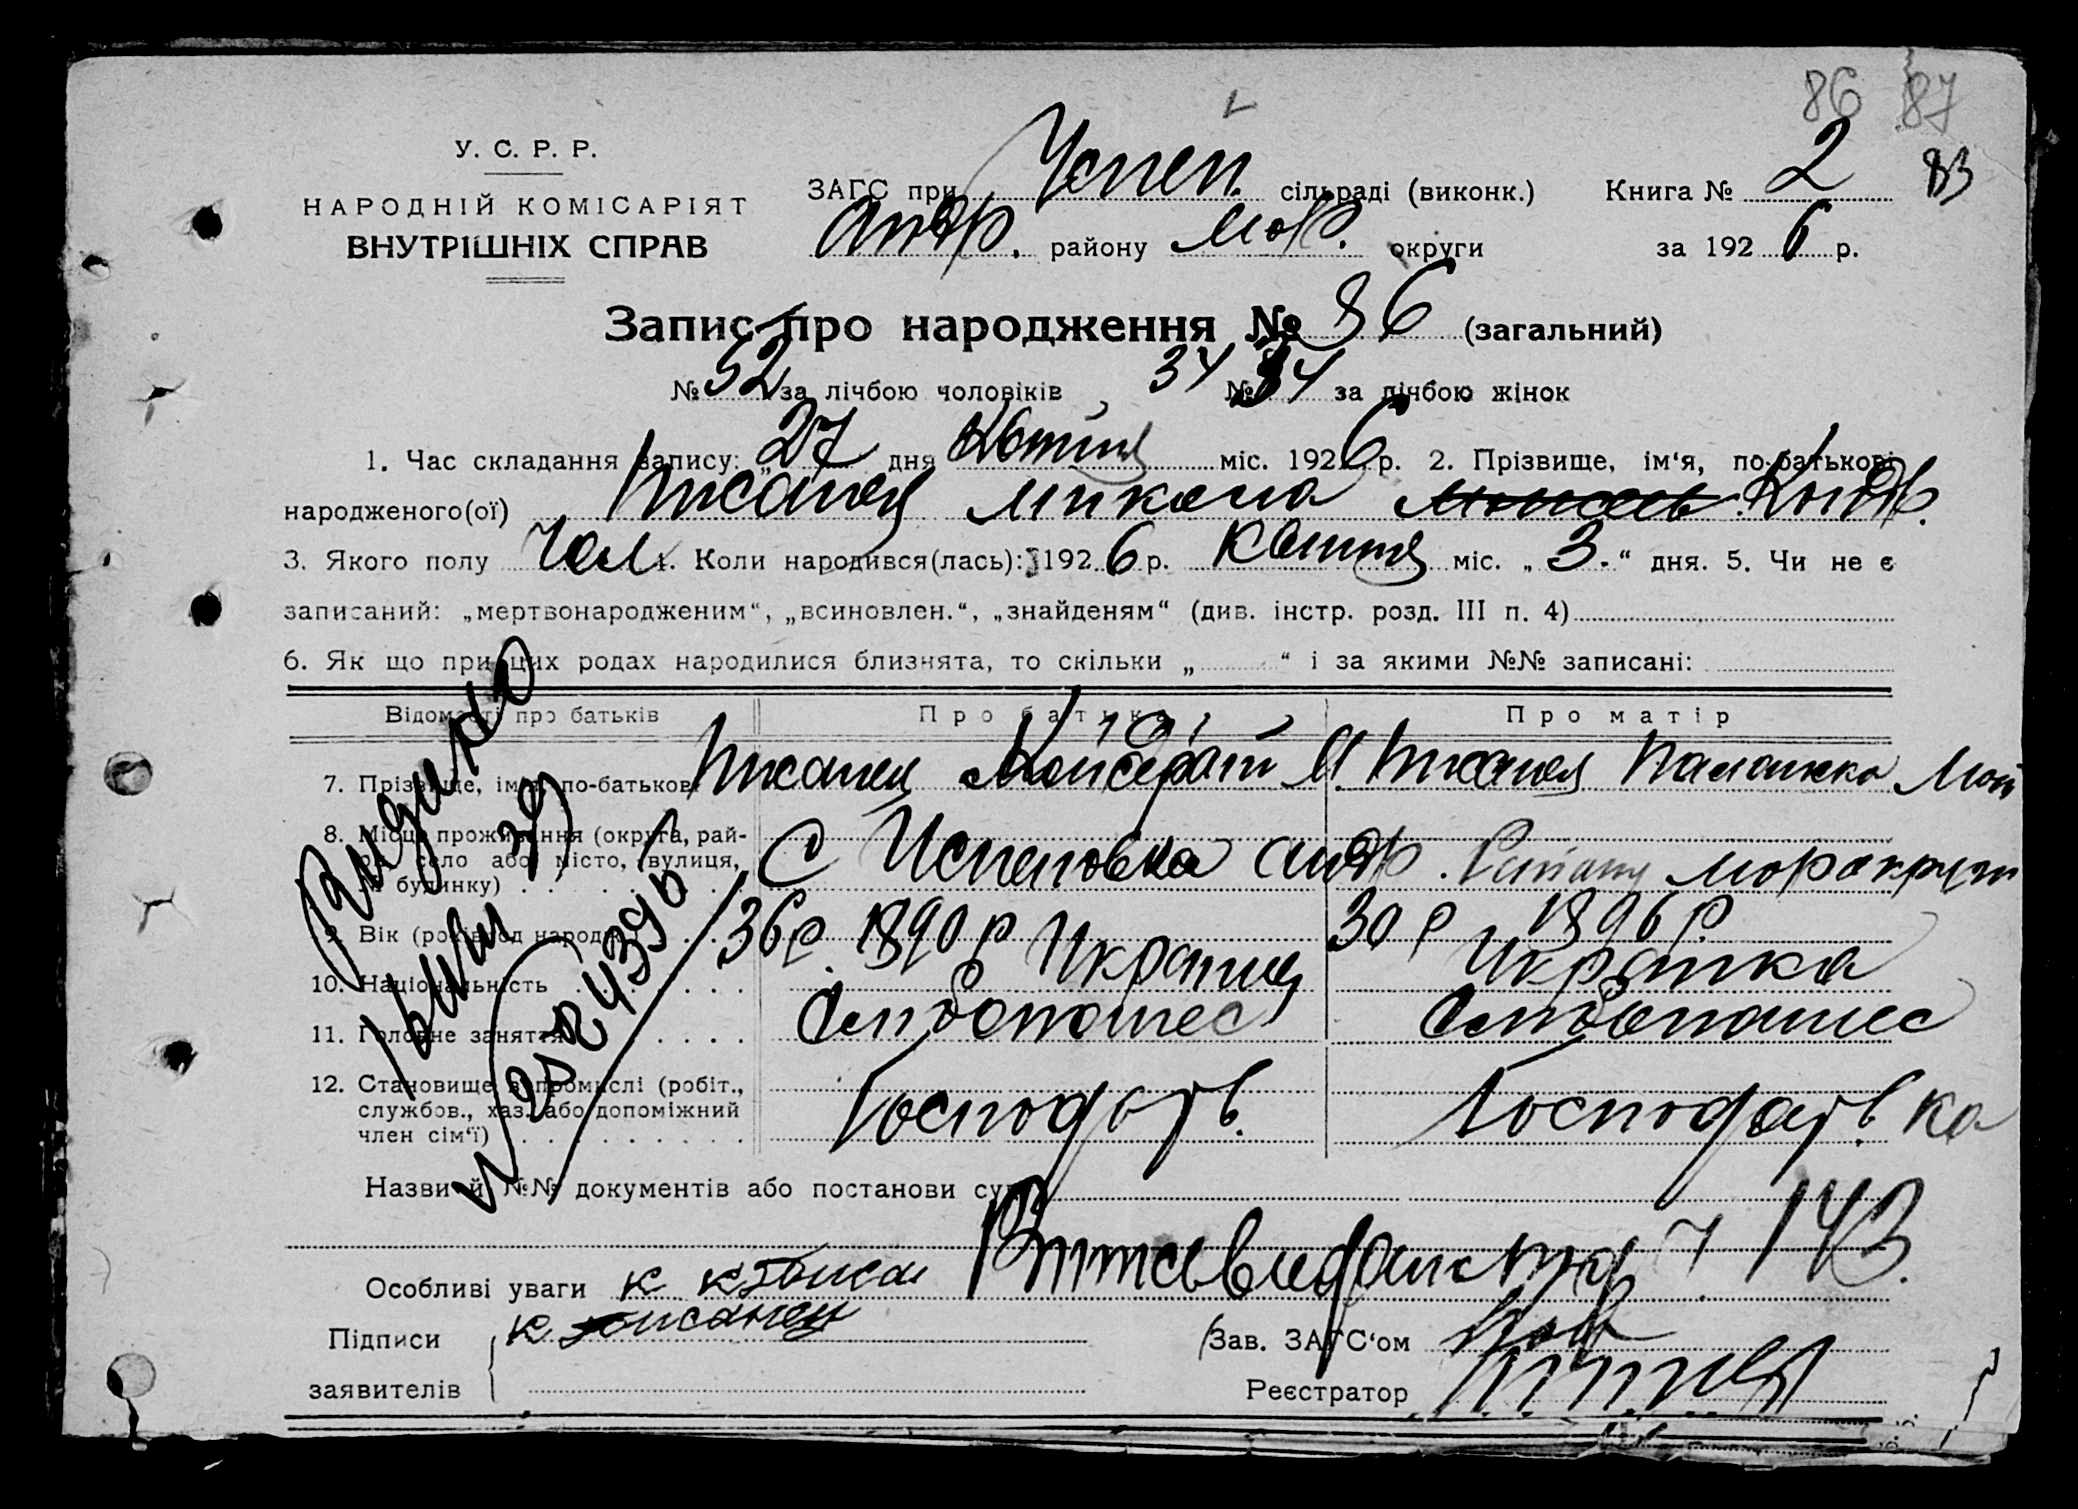 86 87
У. С. Р. Р.
НАРОДНІЙ КОМІСАРІЯТ
ВНУТРІШНІХ СПРАВ
ЗАГС при Успен. сільраді (виконк.)
Андр. району Мар. округи
Книга № 2 83
за 1926 р.
Запис про народження № 86 (загальний)
№ 52 за лічбою чоловіків 34 № 34 за лічбою жінок
1. Час складання запису: „27 дня Квітня міс. 1926 р. 2. Прізвище, ім‘я, по-батькові
народженого(ої) Писанец Микола Кондр.
3. Якого полу Чол. 4. Коли народився(лась): 1926 р. Квітня міс. „3.“ дня. 5. Чи не є
записаний: „мертвонародженим“, „всиновлен.“, „знайденям“ (див. інстр. розд. III п. 4)
6. Як що при цих родах народилися близнята, то скільки „ “ і за якими №№ записані:
Відомості про батьків Про батька Про матір
7. Прізвище, ім‘я, по-батькові Писанец Кондрат М. Писанец Палажка
8. Місце проживання (округа, рай-
он, село або місто, вулиця,
№ будинку) С Успеновка Андр. Району
9. Вік (років, год народж.) 36 р 1890 р 30 р 1896 р.
10. Національність Українец Українка
11. Головне заняття
12. Становище в промислі (робіт.,
службов., хаз. або допоміжний
член сім‘ї) Господарь. Господарь. ка
Видано
№ 2024396
Назви й №№ документів або постанови суду
143
Особливі уваги К
Підписи К Писанец Зав. ЗАГС‘ом
заявителів Реєстратор